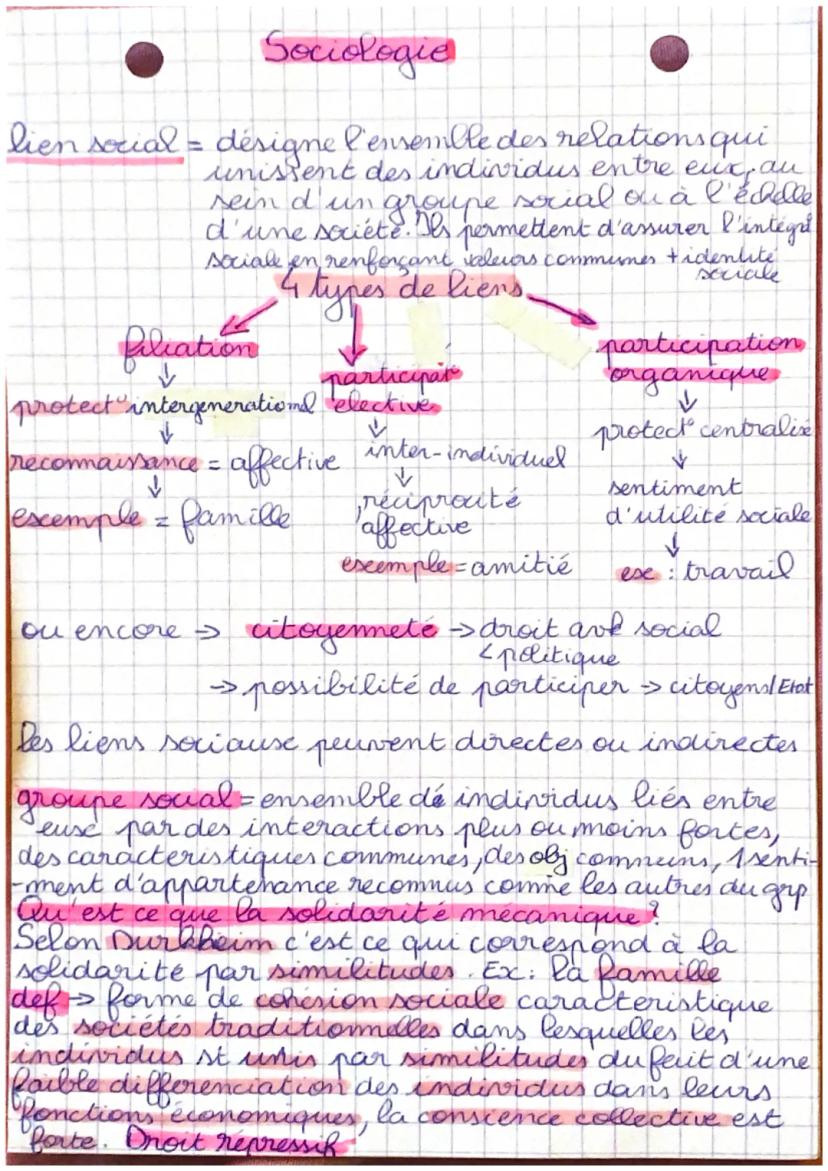 Sociologie
lien social = désigne l'ensemble des relations qui
unissent des individus entre eux, au
sein d'un groupe social ou à l'échelle
d'une société. Ils permettent d'assurer l'intégrat
sociale, en renforçant valeurs communes + identité
sociale
4 types de liens
filiation
protect° intergenerationnel
reconnaissance = affective
exemple = famille
participat°
elective
inter-individuel
réciprouté
affective
exemple = amitié
participation
organique
protect° centralisé
sentiment
d'utilité sociale
ex : travail
ou encore → citoyenneté → droit social
< politique
→ possibilité de participer → citoyens/Etat
les liens sociaux peuvent directes ou indirectes
groupe social = ensemble dé individus liés entre
eux par des interactions plus ou moins fortes,
des caracteristiques communes, des obj communs, 1 senti-
-ment d'appartenance reconnus comme les autres du grp
Qu'est ce que la solidarité mécanique ?
Selon Durkheim c'est ce qui correspond à la
solidarité par similitudes. Ex : la famille
def → forme de cohésion sociale caracteristique
des sociétés traditionnelles dans lesquelles les
individus st unis par similitudes du fait d'une
faible differenciation des individus dans leurs
fonctions économiques, la conscience collective est
forte. Droit répressif